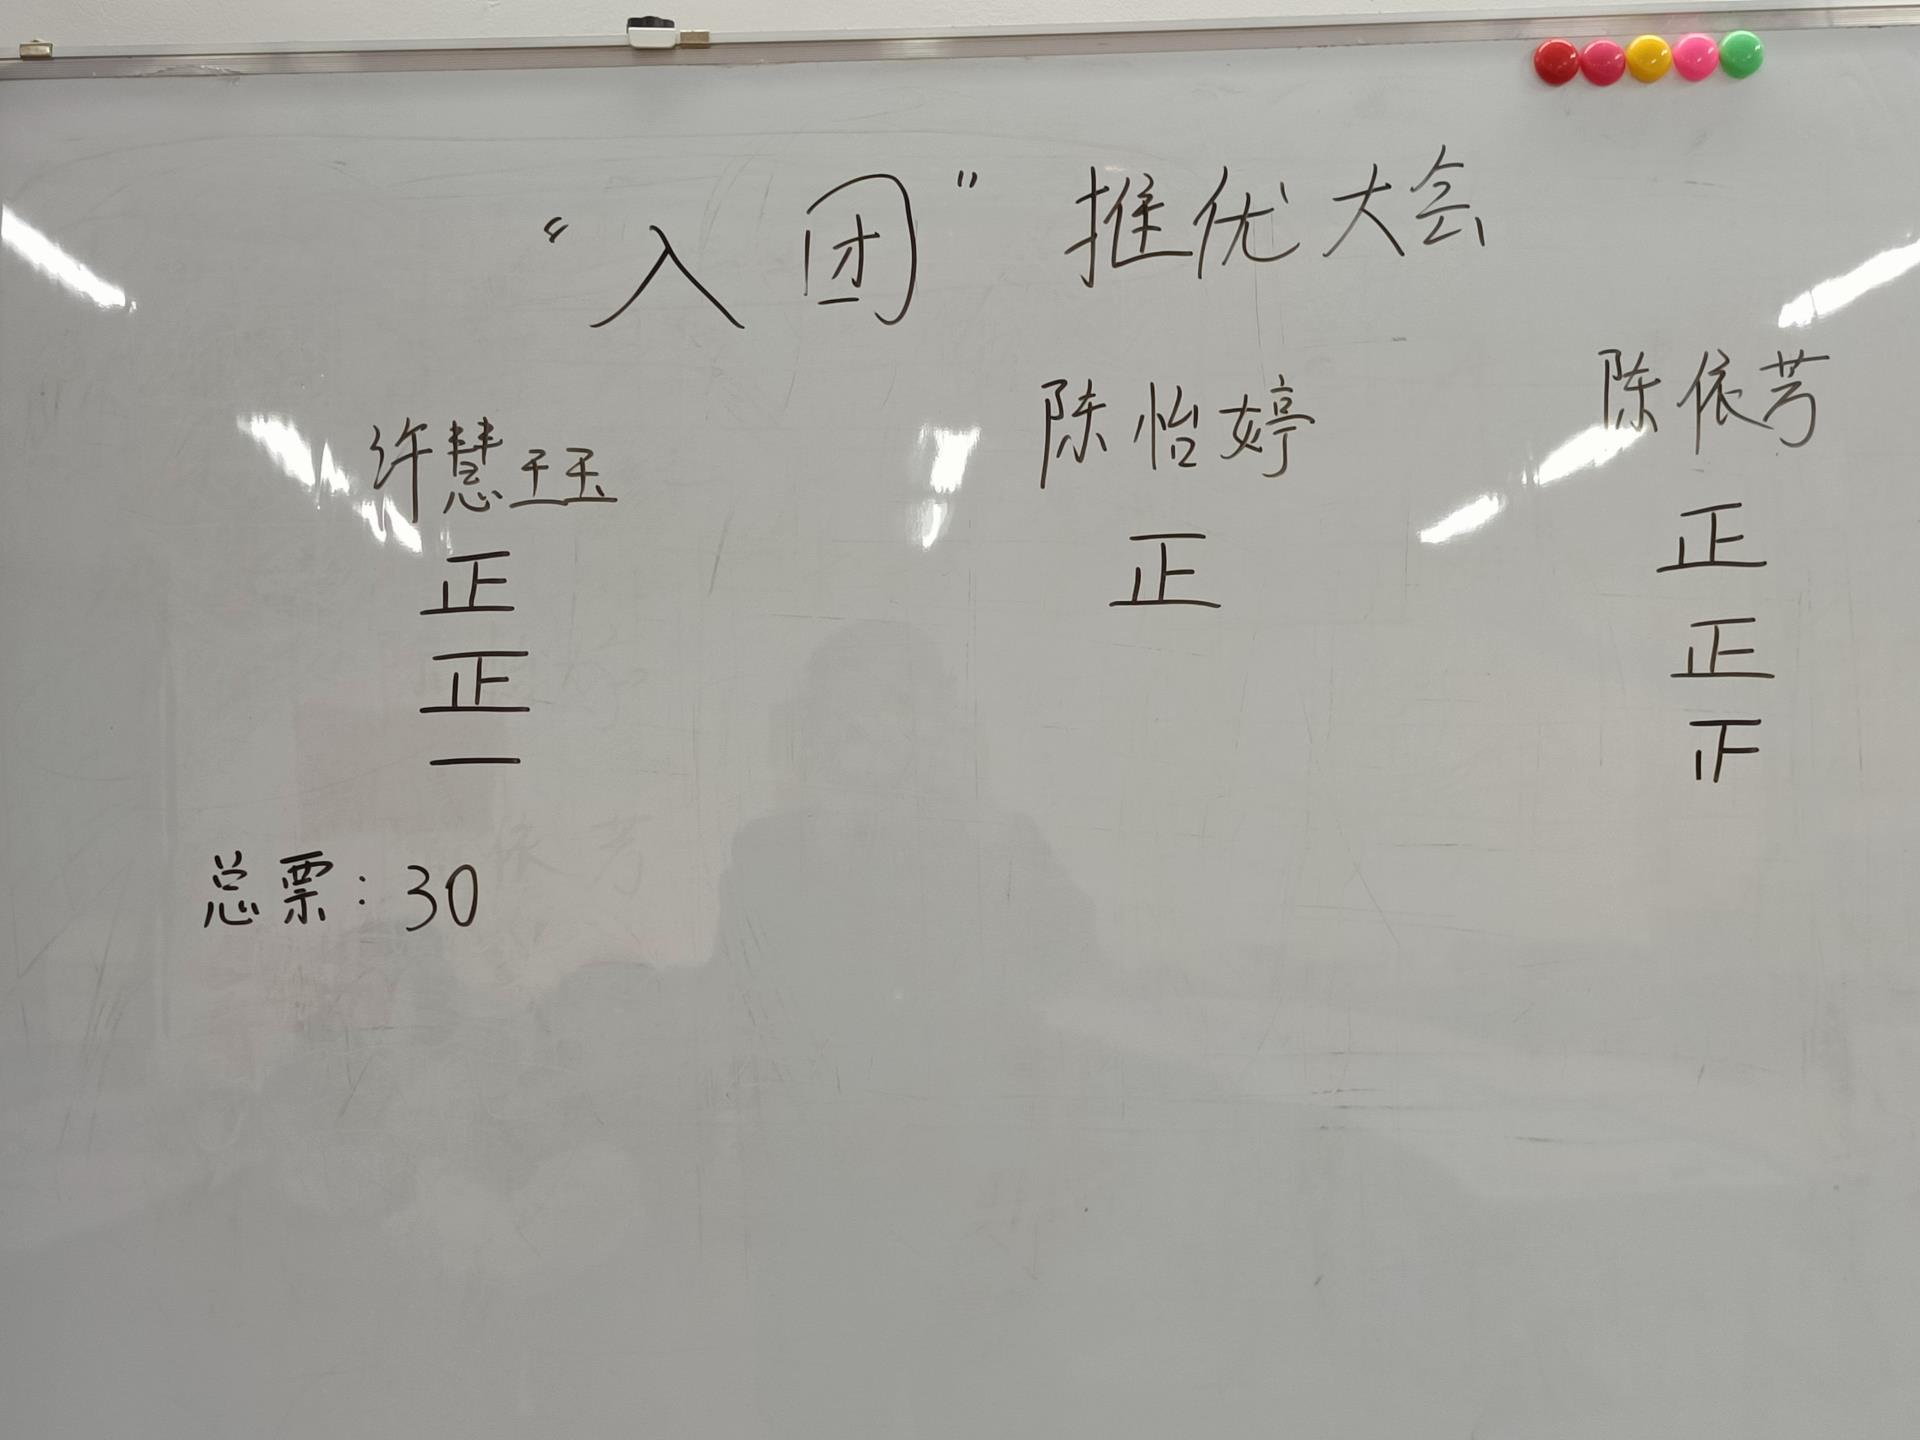 “入团”推优大会
许慧珏 陈怡婷 陈依芳
正 正 正
正 正
一 正
总票：30